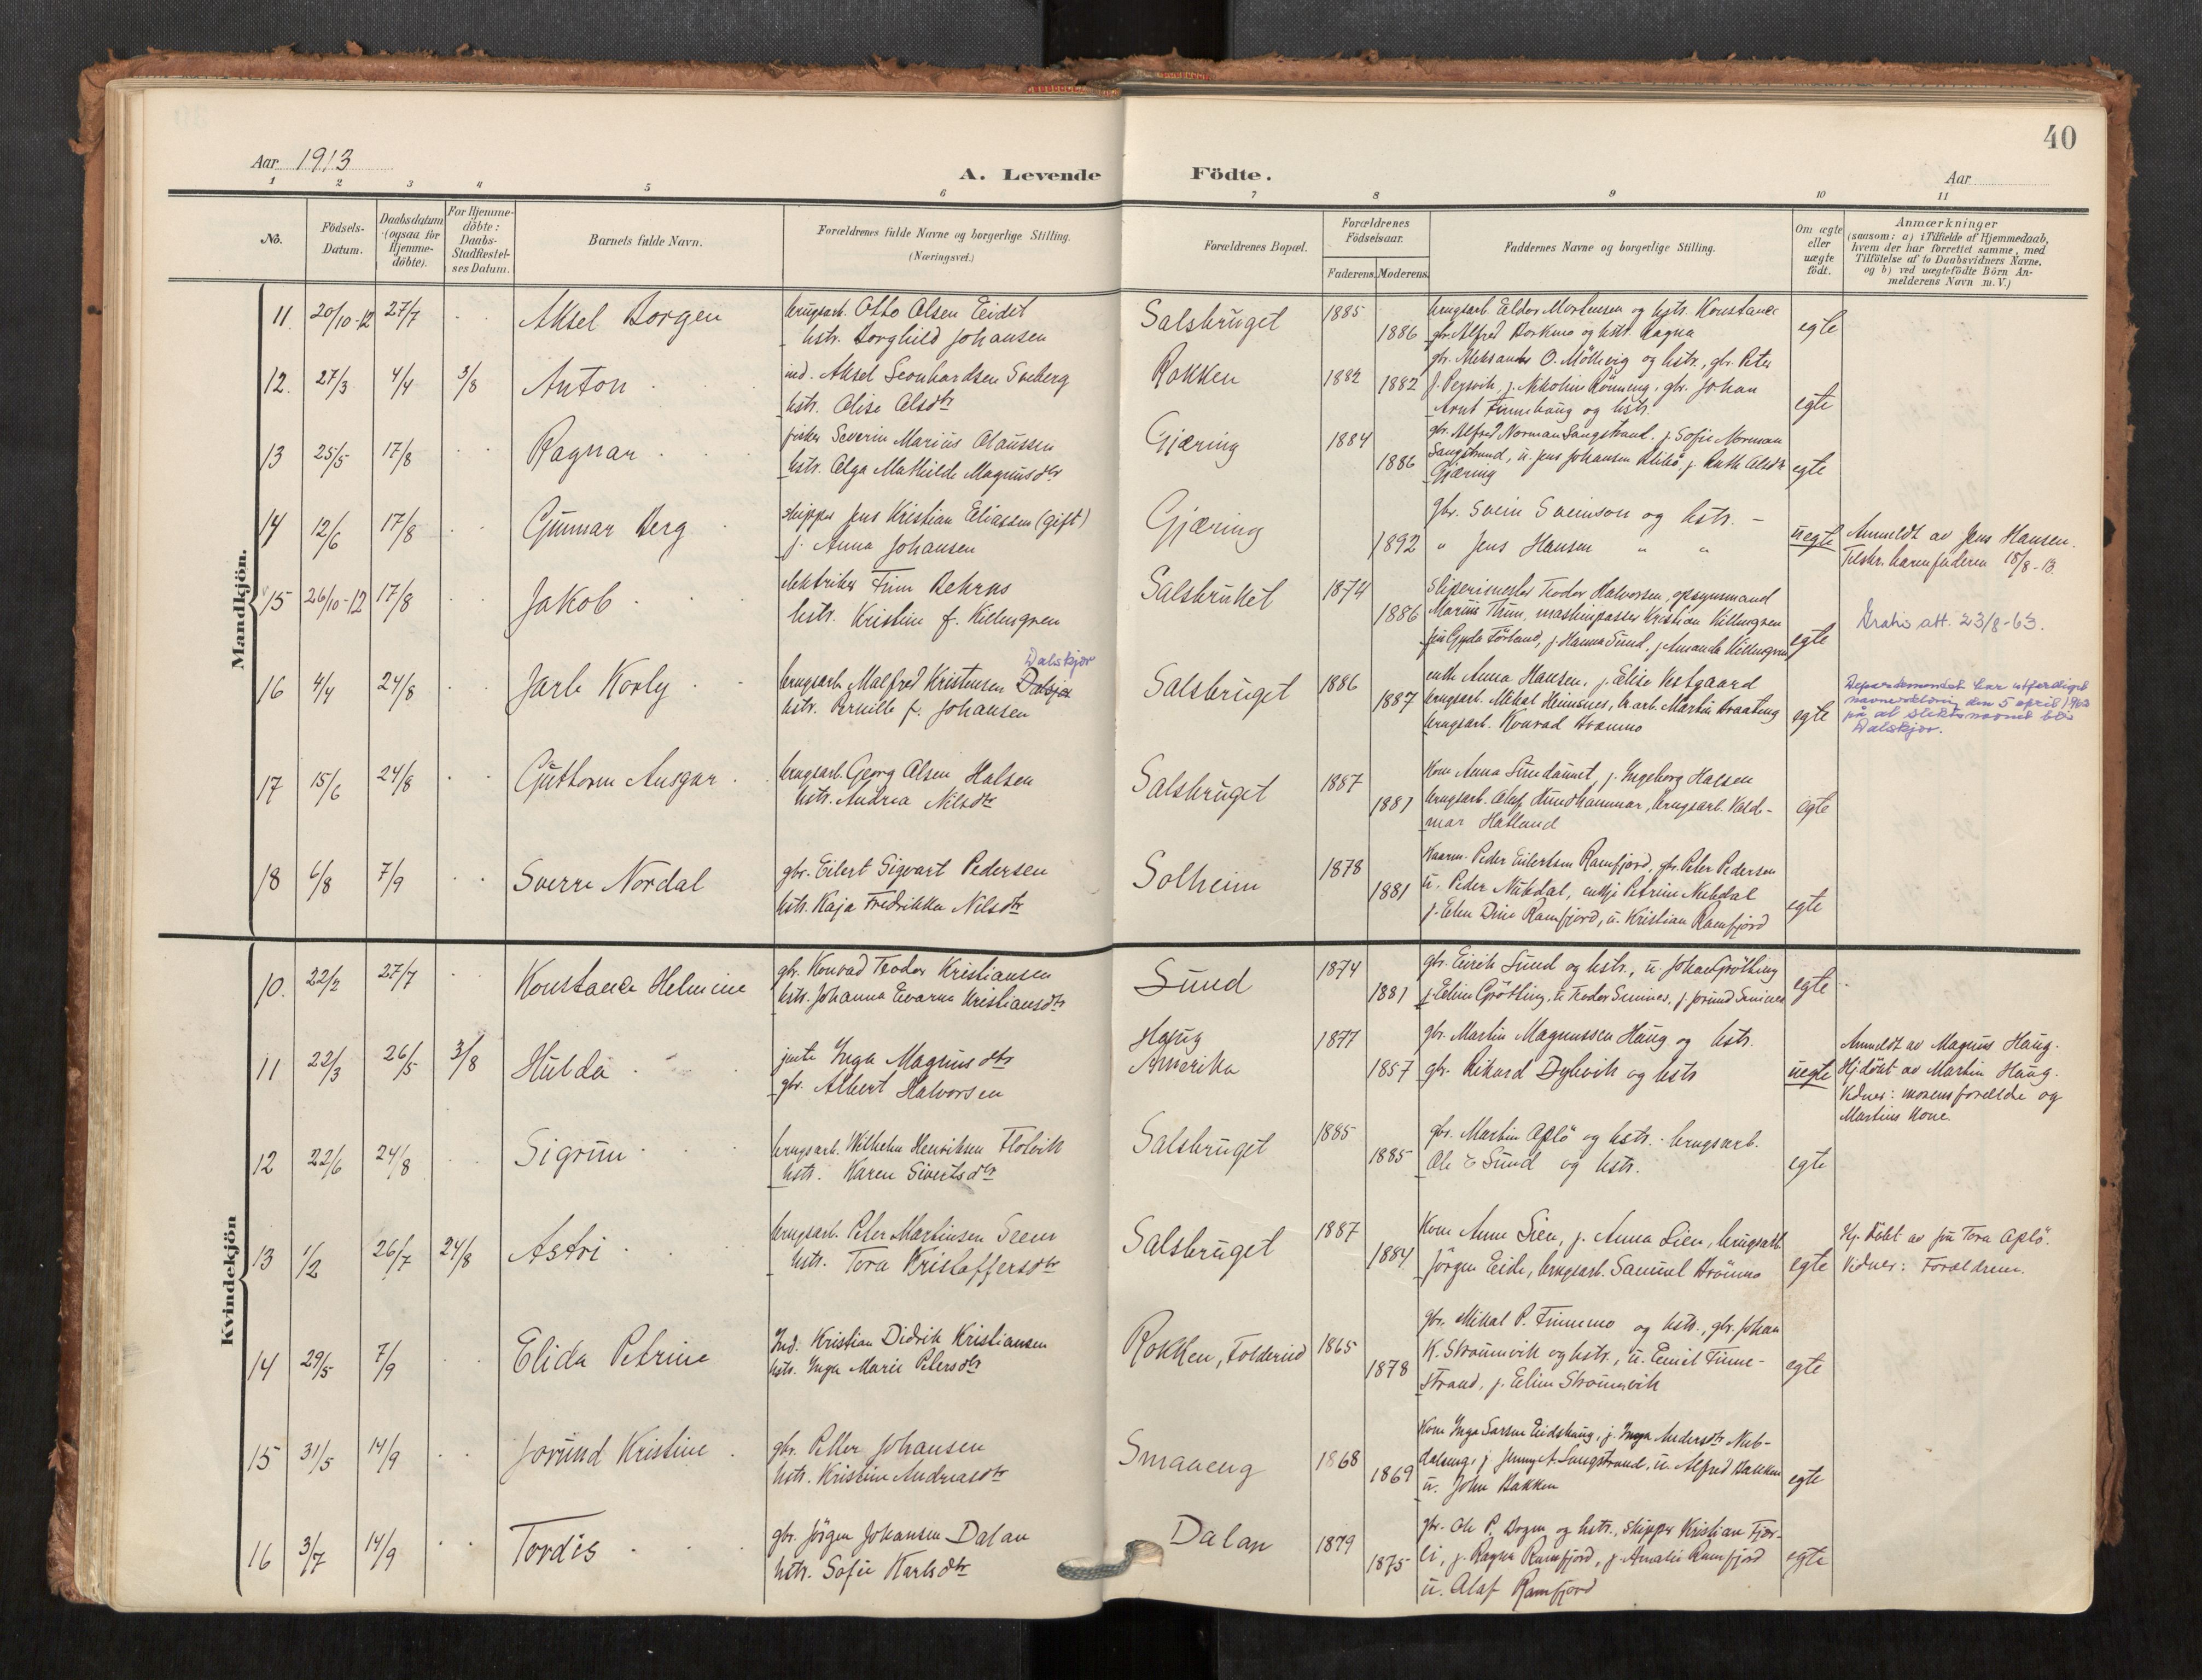 40
Aar 1913
A. Levende Födte.
Aar
1 2 3 4 5 6 7 8 9 10 11
No.
Födsels-
Datum.
Daabsdatum
(ogsaa for
Hjemme-
döbte).
For Hjemme-
döbte:
Daabs-
Stadfæstel-
ses Datum.
Barnets fulde Navn.
Forældrenes fulde Navne og borgerlige Stilling.
(Næringsvei.)
Forældrenes Bopæl.
Forældrenes
Födselsaar.
Faderens. Moderens.
Faddernes Navne og borgerlige Stilling.
Om ægte
eller
uægte
födt.
Anmærkninger
(saasom: a) i Tilfælde af Hjemmedaab,
hvem der har forrettet samme, med
Tilföielse af to Daabsvidners Navne,
og b) ved uægtefödte Börn An-
melderens Navn m. V.)
Mandkjön.
11. 20/10-12 27/7 Aksel Borgen
brugsarb. Otto Olsen Eidet
hstr. Borghild Johansen
Salsbruget 1885 1886
brugsarb. Eldor Mortensen og hstr. Konstanse
gbr. Alfred Borkmo og hstr. Ragna
egte
12. 27/3 4/4 3/8 Anton
ind. Aksel Leonhardsen Sveberg
hstr. Olise Olsdtr
Rokken 1882 1882
gbr. Aleksander O. Möllevig og hstr., gbr. Peter
J. Persvik, j. Nikoline Rönneng, gbr. Johan
Arnt Finnehaug og hstr.
egte
13 25/5 17/8 Ragnar
fisker Severin Marius Olaussen
hstr. Olga Mathilde Magnusdtr
Gjæring 1884 1886
gbr. Alfred Norman Langstrand, j. Sofie Norman
Langstrand, u. Jens Johansen, j. Ruth Olsdtr
Gjæring
egte
14 12/6 17/8 Gunnar Berg
skipper Jens Kristian Eliassen (gift)
j. Anna Johansen
Gjæring 1892
gbr. Svein Sveinson og hstr. –
" Jens Hansen " "
uegte
Anmeldt av Jens Hansen.
Tilskr. barnefaderen 18/8-13.
15 26/10-12 17/8 Jakob
elektriker Finn Behrns
hstr. Kristine f. Killingren
Salsbruket 1874 1886
Sliperimester Teodor Halvorsen, opsynsmand
Marius Thun, maskinpasser Kristian Killingren
frk Gyda Förland, j. Hanna Sund, j. Amanda Killingren
egte
Gratis att. 23/8-63.
16 4/4 24/8 Jarle Korly
Dalskjær
brugsarb. Malfred Kristensen Dalsjø
hstr. Pernille f. Johansen
Salsbruget 1886 1887
enke Anna Hansen, j. Elise Vestgaard
brugsarb. Mikal Heimsnes, br.arb. Martin Braateng
brugsarb. Konrad Brømmo
egte
Departementet har utferdiget
den 5 april
på at slektsnavnet blir
Dalskjær.
17 15/6 24/8 Guttorm Ansgar
brugsarb. Georg Olsen Halsen
hstr. Andrea Nilsdtr
Salsbruget 1887 1881
Kone Anna Sundaunet, j. Ingeborg Halsen
brugsarb. Olaf Kundhammar, brugsarb. Valde-
mar Hatland
egte
18 6/8 7/9 Sverre Nordal
gbr. Eilert Sigvart Pedersen
hstr. Kaja Fredrikke Nilsdtr
Solheim 1878 1881
Peder Eilertsen Ramfjord, gbr. Peter Pedersen
u. Peder Nubdal, enkje Petrine Nubdal
j. Elen Dine Ramfjord, u. Kristian Ramfjord
egte
Kvindekjön
10. 22/2 27/7 Konstance Helmine
gbr. Konrad Teodor Kristiansen
hstr. Johanna Evarna Kristiansdtr
Sund 1874 1881
gbr. Eirik Sund og hstr., u. Johan Grötting
j. Eline Grötting, u. Teodor Smines, j. Jorund Smines
egte
11 22/3 26/5 3/8 Hulda
jente Inga Magnusdtr
gbr. Albert Halvorsen
Haug
Amerika
1877 1857
gbr. Martin Magnussen Haug og hstr.
gbr. Rikard Dybvik og hstr
uegte
Anmeldt av Magnus Haug.
Hjdöbt av Martin Haug.
Vidner: morens forældre og
Martins kone.
12 22/6 24/8 Sigrun
brugsarb. Wilhelm Henriksen Flotvik
hstr. Karen Sivertsdtr
Salsbruget 1885 1885
gbr. Martin Oplö og hstr. brugsarb.
Ole E Sund og hstr.
egte
13 1/2 26/7 24/8 Astri
brugsarb. Peter Martinsen Seem
hstr. Tora Kristoffersdtr
Salsbruget 1887 1884
Kone Anne Lien, j. Anna Lien, brugsarb.
Jörgen Eide, brugsarb. Samuel Brömmo
egte
Hj. döbt av fru Tora Oplö.
Vidner: Forældrene.
14 29/5 7/9 Elida Petrine
Ind. Kristian Didrik Kristiansen
hstr. Inga Marie Petersdtr
Rokken, Foldereid 1865 1878
gbr. Mikal P. Finnemo og hstr., gbr. Johan
K. Strömvik og hstr., u. Emil Finne-
strand, j. Eline Strömsvik
egte
15 31/5 14/9 Jorund Kristine
gbr. Petter Johansen
hstr. Kristine Andreasdtr
Smaaeng 1868 1869
Kone Inga Larsen Eidshaug, j. Inga Andersdtr Nub-
daleng, j. Jenny A. Langstrand, u. Alfred Bakken
u. John Bakken
egte
16 3/7 14/9 Tordis
gbr. Jörgen Johansen Dalan
hstr. Sofie Karlsdtr
Dalan 1879 1875
gbr. Ole P. Bogen og hstr., skipper Kristian Fjær-
li, j. Ragna Ramfjord, j. Amalie Ramfjord
u. Olaf Ramfjord
egte